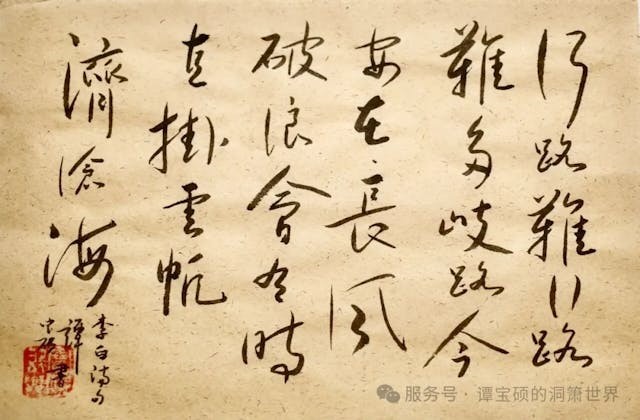 行路難行路
難多歧路今
安在長風
破浪會有時
直掛雲帆
濟滄海
李白詩句
譚寶碩書
服务号·谭宝硕的洞箫世界